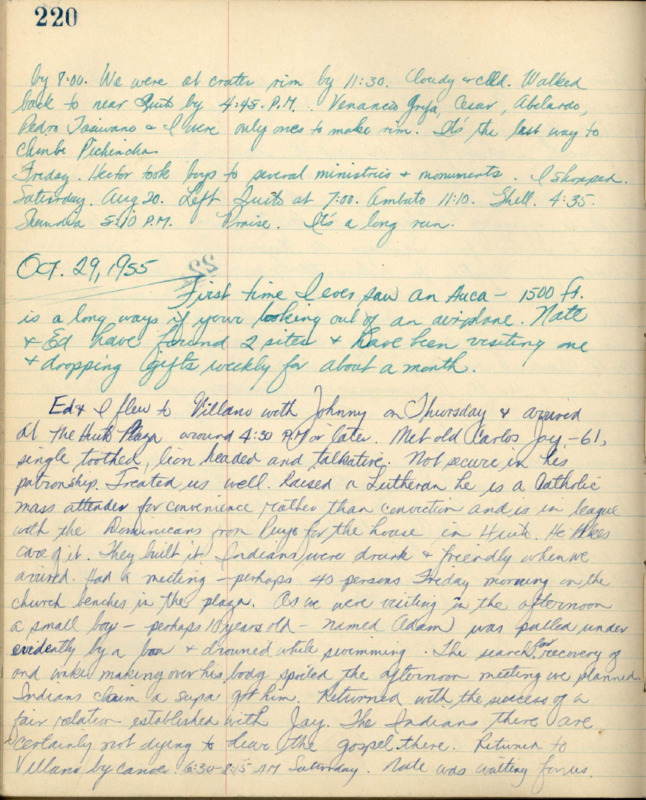 220
by 8:00. We were at crater rim by 11:30. Cloudy & cold. Walked
back to near Quito by 4:45. P.M. Venancio Grefa, Cesar, Abelardo,
Pedro & I were only ones to make rim. It's the last way to
climb Pichincha.
Friday. Hector took boys to several ministries & monuments. I shopped.
Saturday. Aug 20. Left Quito at 7:00. Ambato 11:10. Shell. 4:35.
Shandia 5:10 P.M. Praise. It's a long run.
22
Oct. 29, 1955
First time I ever saw an Auca — 1500 ft.
is a long ways if your looking out of an airplane. Nate
& Ed have found 2 sites & have been visiting one
& dropping gifts weekly for about a month.
Ed & I flew to Villano with Johnny on Thursday & arrived
at the Huito Plaza around 4:30 P.M or later. Met old Carlos Jay, - 61,
single toothed, lion headed and talkative. Not secure in his
patronship. Treated us well. Raised a Lutheran he is a Catholic
mass attender for convenience rather than conviction and is in league
with the Dominicans from Puyo for the house in Huito. He takes
care of it. They built it. Indians were drunk & friendly when we
arrived. Had a meeting - perhaps 40 persons Friday morning on the
church benches in the plaza. As we were visiting in the afternoon
a small boy - perhaps 10 years old - named Adam was pulled under
evidently by a boa & drowned while swimming. The search for, recovery of
and wake making over his body spoiled the afternoon meeting we planned.
Indians claim a supa got him. Returned with the success of a
fair relation established with Jay. The Indians there are
certainly not dying to hear the gospel there. Return to
Villano by canoe. 6:30-8:15 AM Saturday. Nate was waiting for us.